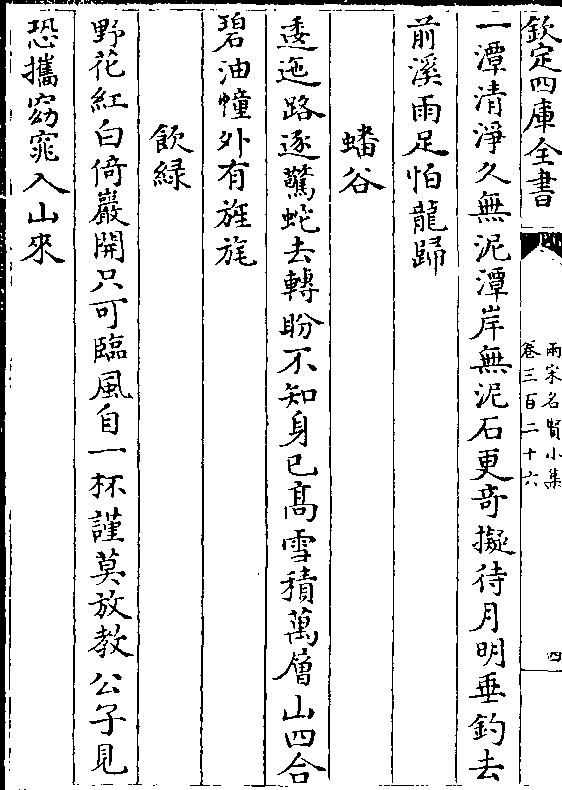 欽定四庫全書
兩宋名賢小集
卷三百二十六
四
一潭清淨久無泥潭岸無泥石更奇擬待月明垂釣去
前溪雨足怕龍歸
蟠谷
逶迤路逐驚蛇去轉盼不知身已髙雪積萬層山四合
碧油幢外有旌旄
飲緑
野花紅白倚巖開只可臨風自一杯謹莫放教公子見
恐攜窈窕入山來